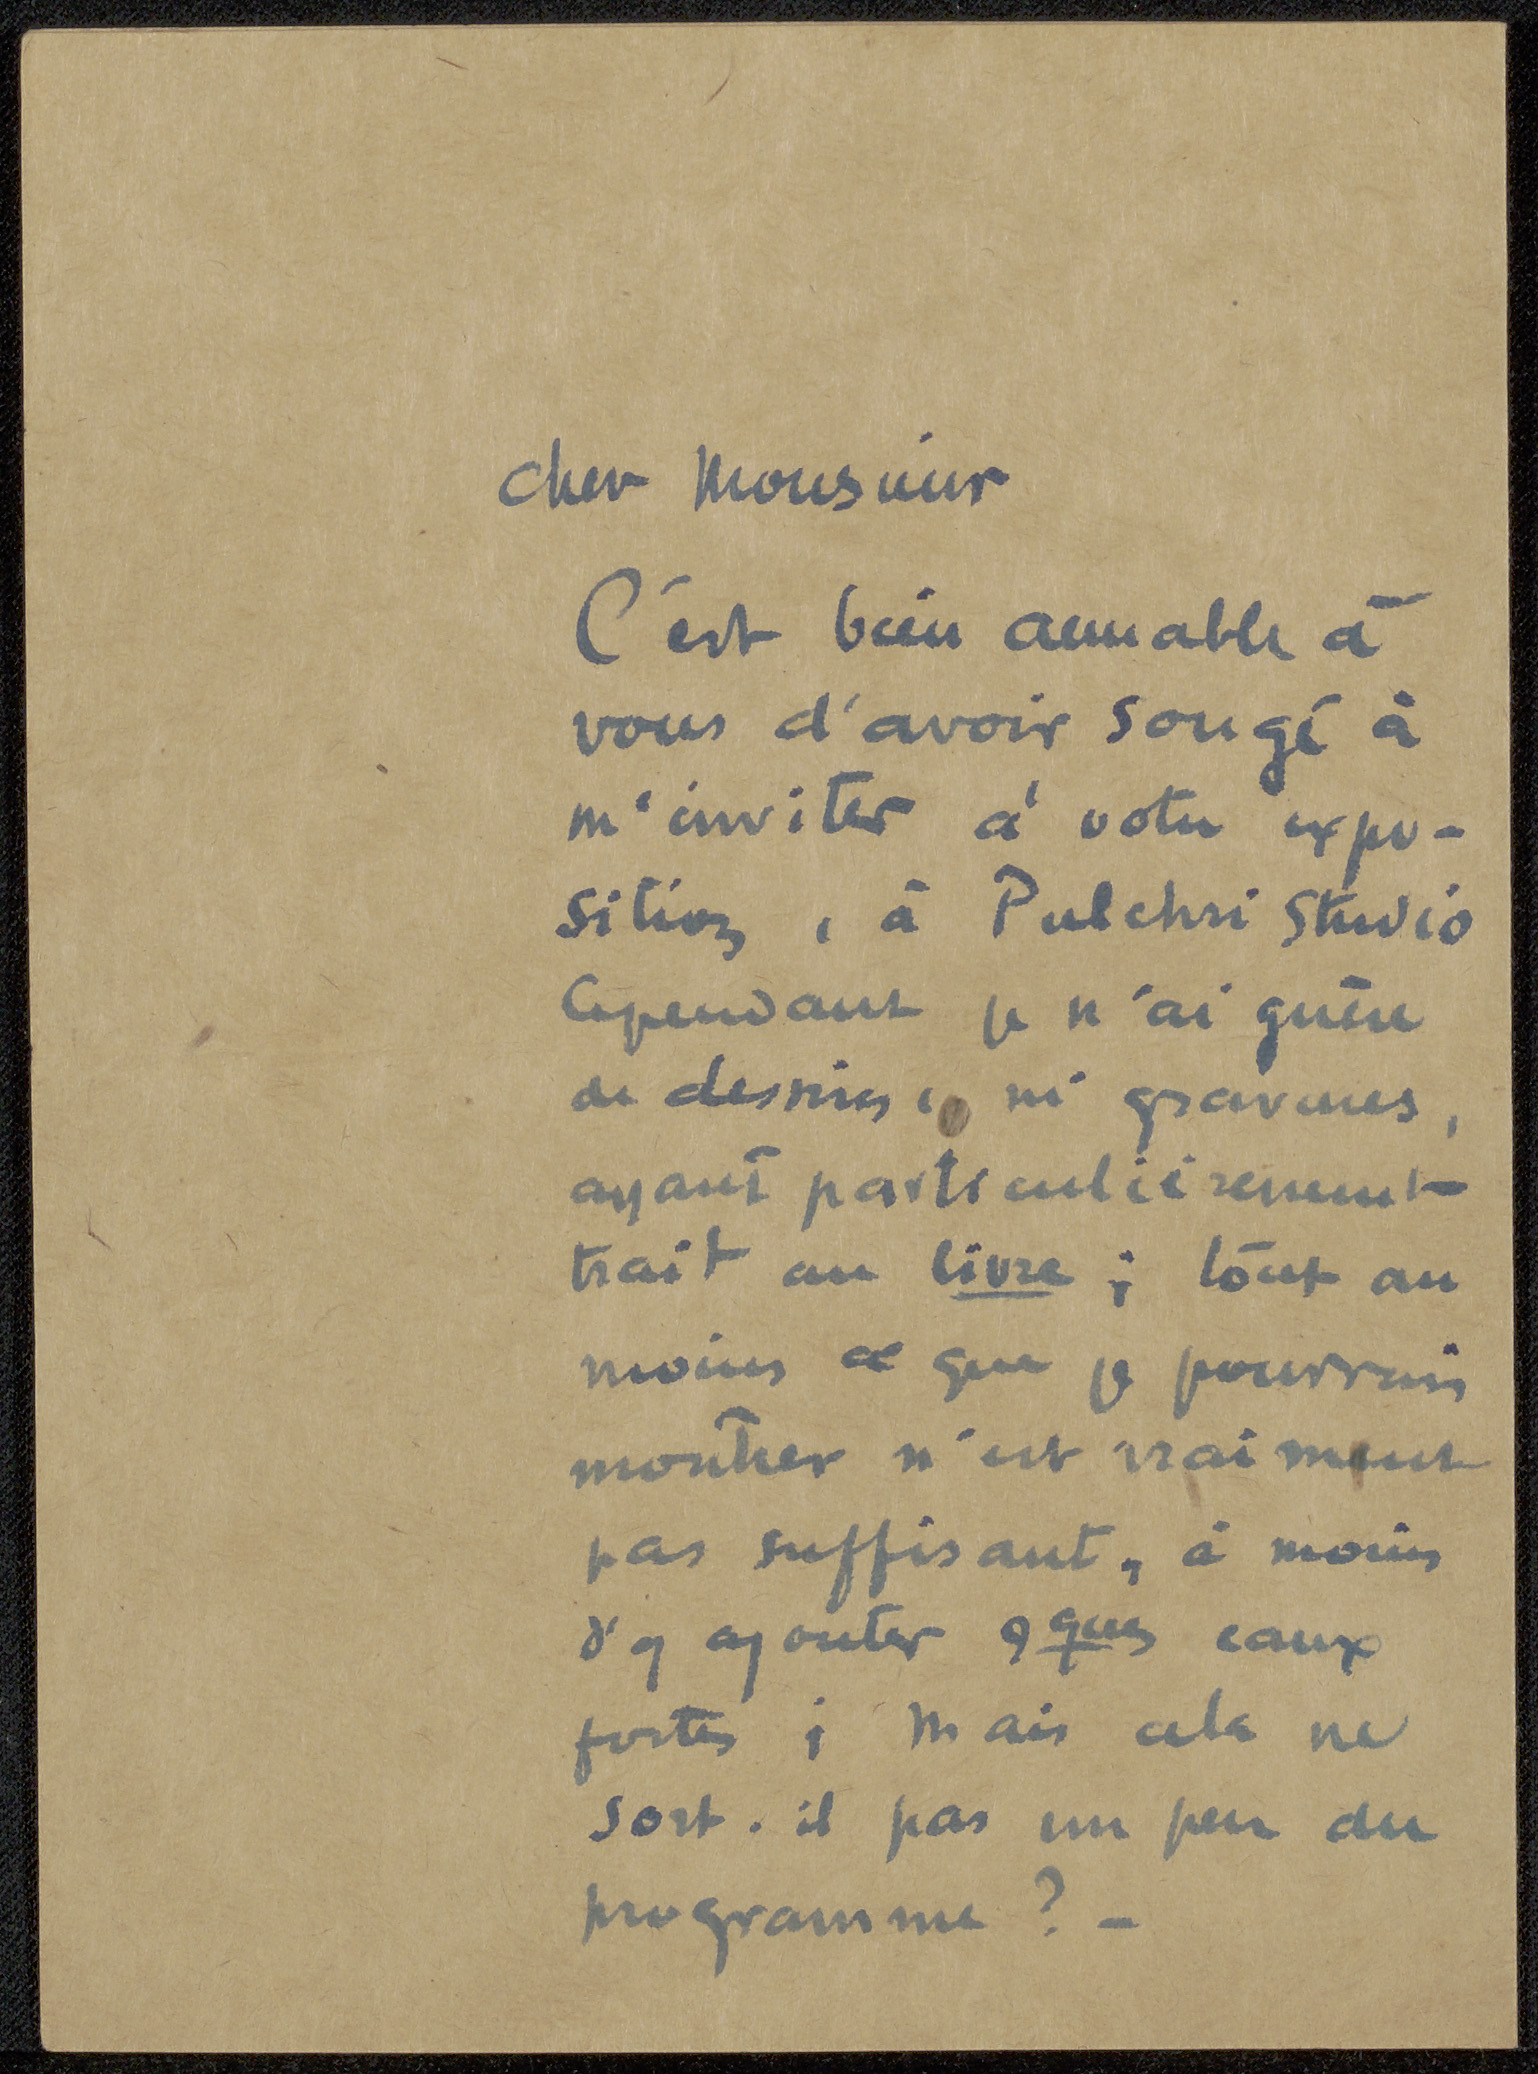 cher Monsieur
C'est bien aimable à
vous d'avoir songé à
m'inviter à votre expo-
sition, à Pulchri Studio
Cependant je n'ai guère
de dessins, ni gravures,
ayant particulièrement
trait au livre ; tout au
moins ce que je pourrais
montrer n'est vraiment
pas suffisant, à moins
d'y ajouter qques eaux
fortes ; Mais cela ne
sort-il pas un peu du
programme ? –